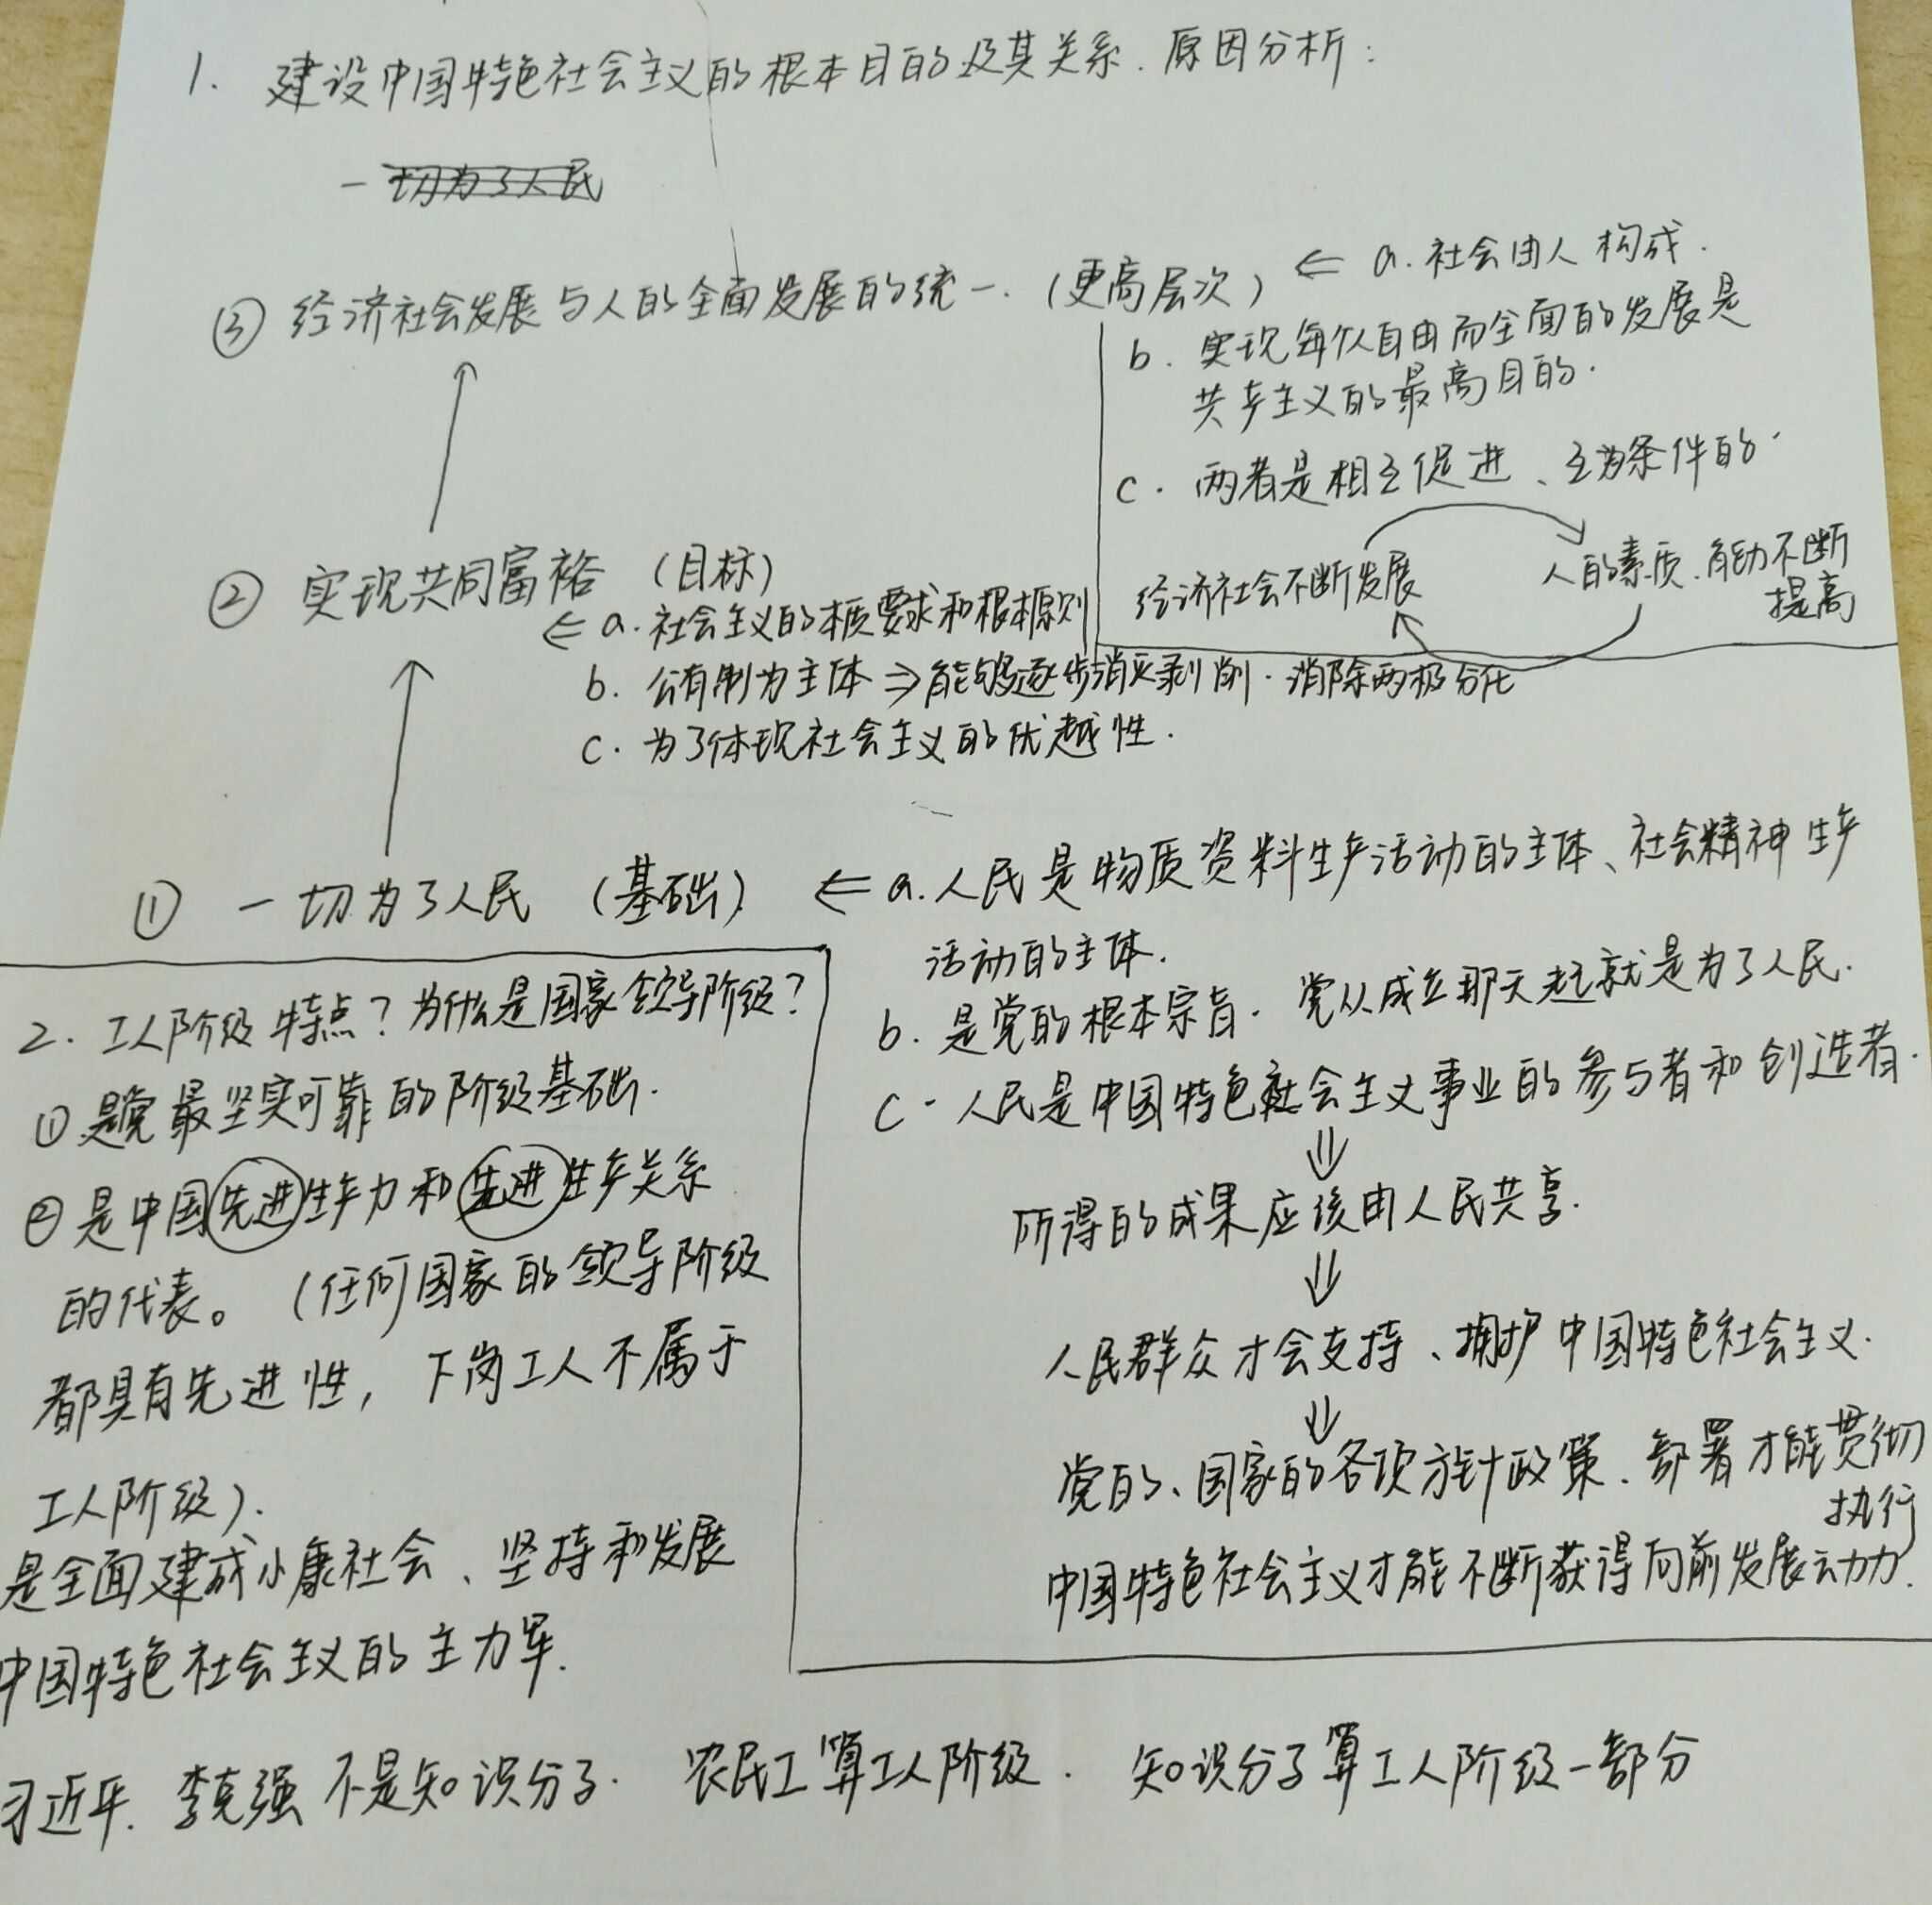 1. 建设中国特色社会主义的根本目的及其关系.原因分析:
一切为了人民
③ 经济社会发展与人的全面发展的统一.(更高层次) ⇐ a.社会由人构成.
b. 实现每个人自由而全面的发展是
共产主义的最高目的.
c. 两者是相互促进、互为条件的.
经济社会不断发展
人的素质.能力不断
提高
② 实现共同富裕 (目标)
⇐ a.社会主义的本质要求和根本原则
b. 公有制为主体 ⇒ 能够逐步消灭剥削.消除两极分化
c. 为了体现社会主义的优越性.
① 一切为了人民 (基础) ⇐ a.人民是物质资料生产活动的主体、社会精神生产
活动的主体.
b. 是党的根本宗旨.党从成立那天起就是为了人民.
c. 人民是中国特色社会主义事业的参与者和创造者.
⇓
所得的成果应该由人民共享.
⇓
人民群众才会支持、拥护中国特色社会主义.
⇓
党的、国家的各项方针政策.部署才能贯彻
执行
中国特色社会主义才能不断获得向前发展动力.
2. 工人阶级特点?为什么是国家领导阶级?
① 是党最坚实可靠的阶级基础.
② 是中国先进生产力和先进生产关系
的代表。(任何国家的领导阶级
都具有先进性,下岗工人不属于
工人阶级).
是全面建成小康社会、坚持和发展
中国特色社会主义的主力军.
习近平.李克强不是知识分子. 农民工算工人阶级. 知识分子算工人阶级一部分